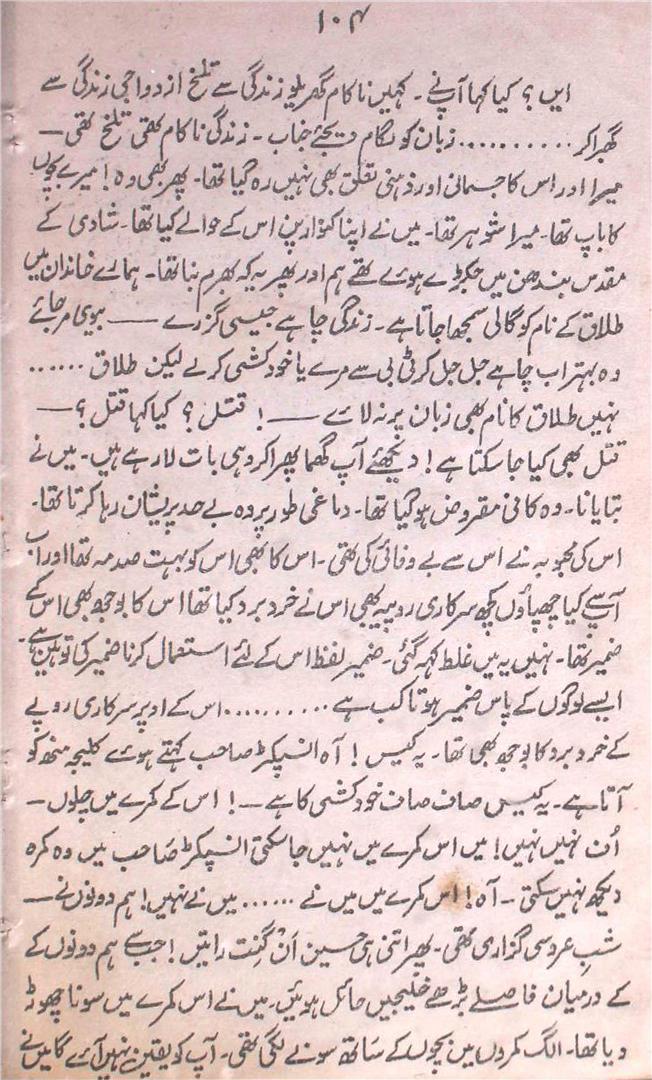 ۱۰۴
ایں؟ کیا کہا آپ نے۔ کہیں ناکام گھریلو زندگی سے تلخ ازدواجی زندگی سے
گھبرا کر .......... زبان کو لگام دیجئے جناب۔ زندگی ناکام تھی تلخ تھی —
میرا اور اس کا جسمانی اور ذہنی تعلق بھی نہیں رہ گیا تھا۔ پھر بھی وہ! میرے بچوں
کا باپ تھا۔ میرا شوہر تھا۔ میں نے اپنا کنوارپن اس کے حوالے کیا تھا۔ شادی کے
مقدس بندھن میں جکڑے ہوئے تھے ہم اور پھر یہ کہ بھرم نبا تھا۔ ہمارے خاندان میں
طلاق کے نام کو گالی سمجھا جاتا ہے۔ زندگی چاہے جیسی گزرے — بیوی مر جائے
وہ بہتر اب چاہے جل جل کر ٹی بی سے مرے یا خودکشی کرلے لیکن طلاق ......
نہیں طلاق کا نام بھی زبان پر نہ لائے —! قتل؟ کیا کہا قتل؟ —
قتل بھی کیا جا سکتا ہے! دیکھئے آپ گھما پھرا کر وہی بات لا رہے ہیں۔ میں نے
بتایا نا۔ وہ کافی مقروض ہو گیا تھا۔ دماغی طور پر وہ بے حد پریشان رہا کرتا تھا۔
اس کی محبوبہ نے اس سے بے وفائی کی تھی۔ اس کا بھی اس کو بہت صدمہ تھا اور اب
آپ سے کیا چھپاؤں کچھ سرکاری روپیہ بھی اس نے خردبرد کیا تھا اس کا بوجھ بھی اس کے
ضمیر تھا۔ نہیں یہ میں غلط کہہ گئی۔ ضمیر لفظ اس کے لئے استعمال کرنا ضمیر کی توہین ہے۔
ایسے لوگوں کے پاس ضمیر ہوتا کب ہے .......... اس کے اوپر سرکاری روپے
کے خردبرد کا بوجھ بھی تھا۔ یہ کیس! آہ انسپکٹر صاحب کہتے ہوئے کلیجہ منھ کو
آتا ہے۔ یہ کیس صاف صاف خودکشی کا ہے —! اس کے کمرے میں چلوں —
اُن نہیں نہیں! میں اس کمرے میں نہیں جا سکتی انسپکٹر صاحب میں وہ کمرہ
دیکھ نہیں سکتی۔ آہ! اس کمرے میں میں نے ...... میں نے نہیں! ہم دونوں نے —
شبِ عروسی گزاری تھی۔ پھر اتنی ہی حسین اَن گنت راتیں! جب سے ہم دونوں کے
کے درمیان فاصلے بڑھے خلیجیں حائل ہوئیں۔ میں نے اس کمرے میں سونا چھوڑ
دیا تھا۔ الگ کمروں میں بچوں کے ساتھ سونے لگی تھی۔ آپ کو یقین نہیں آئے گا میں نے